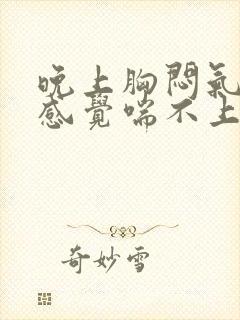 晚上胸悶氣
感覺喘不上
奇妙雪